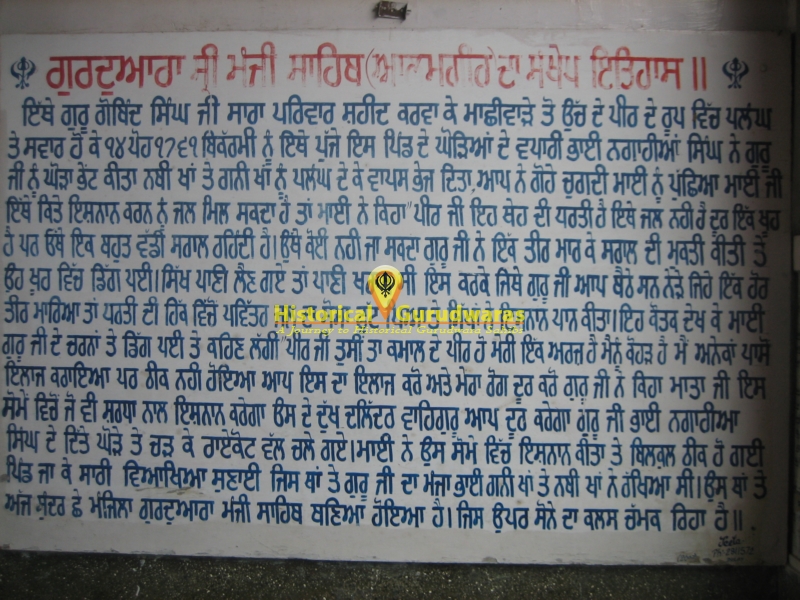 ਗੁਰਦੁਆਰਾ ਸ੍ਰੀ ਮੰਜੀ ਸਾਹਿਬ (ਆਲਮਗੀਰ) ਦਾ ਸੰਖੇਪ ਇਤਿਹਾਸ ॥
ਇੱਥੇ ਗੁਰੂ ਗੋਬਿੰਦ ਸਿੰਘ ਜੀ ਸਾਰਾ ਪਰਿਵਾਰ ਸ਼ਹੀਦ ਕਰਵਾ ਕੇ ਮਾਛੀਵਾੜੇ ਤੋਂ ਉੱਚ ਦੇ ਪੀਰ ਦੇ ਰੂਪ ਵਿੱਚ ਪਲੰਘ
ਤੇ ਸਵਾਰ ਹੋ ਕੇ ੧੪ ਪੋਹ ੧੭੬੧ ਬਿਕੱਰਮੀ ਨੂੰ ਇਥੇ ਪੁੱਜੇ ਇਸ ਪਿੰਡ ਦੇ ਘੋੜਿਆਂ ਦੇ ਵਪਾਰੀ ਭਾਈ ਨਗਾਹੀਆਂ ਸਿੰਘ ਨੇ ਗੁਰੂ
ਜੀ ਨੂੰ ਘੋੜਾ ਭੇਂਟ ਕੀਤਾ ਨਬੀ ਖਾਂ ਤੇ ਗਨੀ ਖਾਂ ਨੂੰ ਪਲੰਘ ਦੇ ਕੇ ਵਾਪਸ ਭੇਜ ਦਿਤਾ, ਆਪ ਨੇ ਗੋਹੇ ਚੁਗਦੀ ਮਾਈ ਨੂੰ ਪੁੱਛਿਆ ਮਾਈ ਜੀ
ਇੱਥੇ ਕਿਤੇ ਇਸ਼ਨਾਨ ਕਰਨ ਨੂੰ ਜਲ ਮਿਲ ਸਕਦਾ ਹੈ ਤਾਂ ਮਾਈ ਨੇ ਕਿਹਾ "ਪੀਰ ਜੀ ਇਹ ਥੇਹ ਦੀ ਧਰਤੀ ਹੈ ਇਥੇ ਜਲ ਨਹੀ ਹੈ ਦੂਰ ਇੱਕ ਖੂਹ
ਹੈ ਪਰ ਓਥੇ ਇਕ ਬਹੁਤ ਵੱਡੀ ਸਰਾਲ ਰਹਿੰਦੀ ਹੈ। ਉਥੇ ਕੋਈ ਨਹੀ ਜਾ ਸਕਦਾ ਗੁਰੂ ਜੀ ਨੇ ਇੱਕ ਤੀਰ ਮਾਰ ਕੇ ਸਰਾਲ ਦੀ ਮੁਕਤੀ ਕੀਤੀ ਤੇ
ਉਹ ਖੂਹ ਵਿੱਚ ਡਿੱਗ ਪਈ। ਸਿੱਖ ਪਾਣੀ ਲੈਣ ਗਏ ਤਾਂ ਪਾਣੀ ਸੀ ਇਸ ਕਰਕੇ ਜਿਥੇ ਗੁਰੂ ਜੀ ਆਪ ਬੈਠੇ ਸਨ ਨੇੜੇ ਜਿਹੇ ਇੱਕ ਹੋਰ
ਤੀਰ ਮਾਰਿਆ ਤਾਂ ਧਰਤੀ ਦੀ ਹਿੱਕ ਵਿੱਚੋਂ ਪਵਿੱਤਰ ਪਾਨ ਕੀਤਾ। ਇਹ ਕੌਤਕ ਦੇਖ ਕੇ ਮਾਈ
ਗੁਰੂ ਜੀ ਦੇ ਚਰਨਾਂ ਤੇ ਡਿੱਗ ਪਈ ਤੇ ਕਹਿਣ ਲੱਗੀ "ਪੀਰ ਜੀ ਤੁਸੀਂ ਤਾਂ ਕਮਾਲ ਦੇ ਪੀਰ ਹੋ ਮੇਰੀ ਇੱਕ ਅਰਜ਼ ਹੈ ਮੈਨੂੰ ਕੋਹੜ ਹੈ ਮੈਂ ਅਨੇਕਾਂ ਪਾਸੋਂ
ਇਲਾਜ ਕਰਾਇਆ ਪਰ ਠੀਕ ਨਹੀ ਹੋਇਆ ਆਪ ਇਸ ਦਾ ਇਲਾਜ ਕਰੋ ਅਤੇ ਮੇਰਾ ਰੋਗ ਦੂਰ ਕਰੋ ਗੁਰੂ ਜੀ ਨੇ ਕਿਹਾ ਮਾਤਾ ਜੀ ਇਸ
ਸੰਮੇ ਵਿਚੋਂ ਜੋ ਵੀ ਸ਼ਰਧਾ ਨਾਲ ਇਸ਼ਨਾਨ ਕਰੇਗਾ ਉਸ ਦੇ ਦੁੱਖ ਦਲਿੰਦਰ ਵਾਹਿਗੁਰੂ ਆਪ ਦੂਰ ਕਰੇਗਾ ਗੁਰੂ ਜੀ ਭਾਈ ਨਗਾਹੀਆ
ਸਿੰਘ ਦੇ ਦਿੱਤੇ ਘੋੜੇ ਤੇ ਚੜ ਕੇ ਰਾਏਕੋਟ ਵੱਲ ਚਲੇ ਗਏ। ਮਾਈ ਨੇ ਉਸ ਸੰਮੇ ਵਿੱਚ ਇਸ਼ਨਾਨ ਕੀਤਾ ਤੇ ਬਿਲਕੁਲ ਠੀਕ ਹੋ ਗਈ
ਪਿੰਡ ਜਾ ਕੇ ਸਾਰੀ ਵਿਆਖਿਆ ਸੁਣਾਈ ਜਿਸ ਥਾਂ ਤੇ ਗੁਰੂ ਜੀ ਦਾ ਮੰਜਾ ਭਾਈ ਗਨੀ ਖਾਂ ਤੇ ਨਬੀ ਖਾਂ ਨੇ ਰੱਖਿਆ ਸੀ। ਉਸ ਥਾਂ ਤੇ
ਅੱਜ ਸੁੰਦਰ ਛੇ ਮੰਜਿਲਾ ਗੁਰਦੁਆਰਾ ਮੰਜੀ ਸਾਹਿਬ ਬਣਿਆ ਹੋਇਆ ਹੈ। ਜਿਸ ਉਪਰ ਸੋਨੇ ਦਾ ਕਲਸ ਚੱਮਕ ਰਿਹਾ ਹੈ॥
Historical Gurudwaras
A Journey to Historical Gurudwara Sahibs